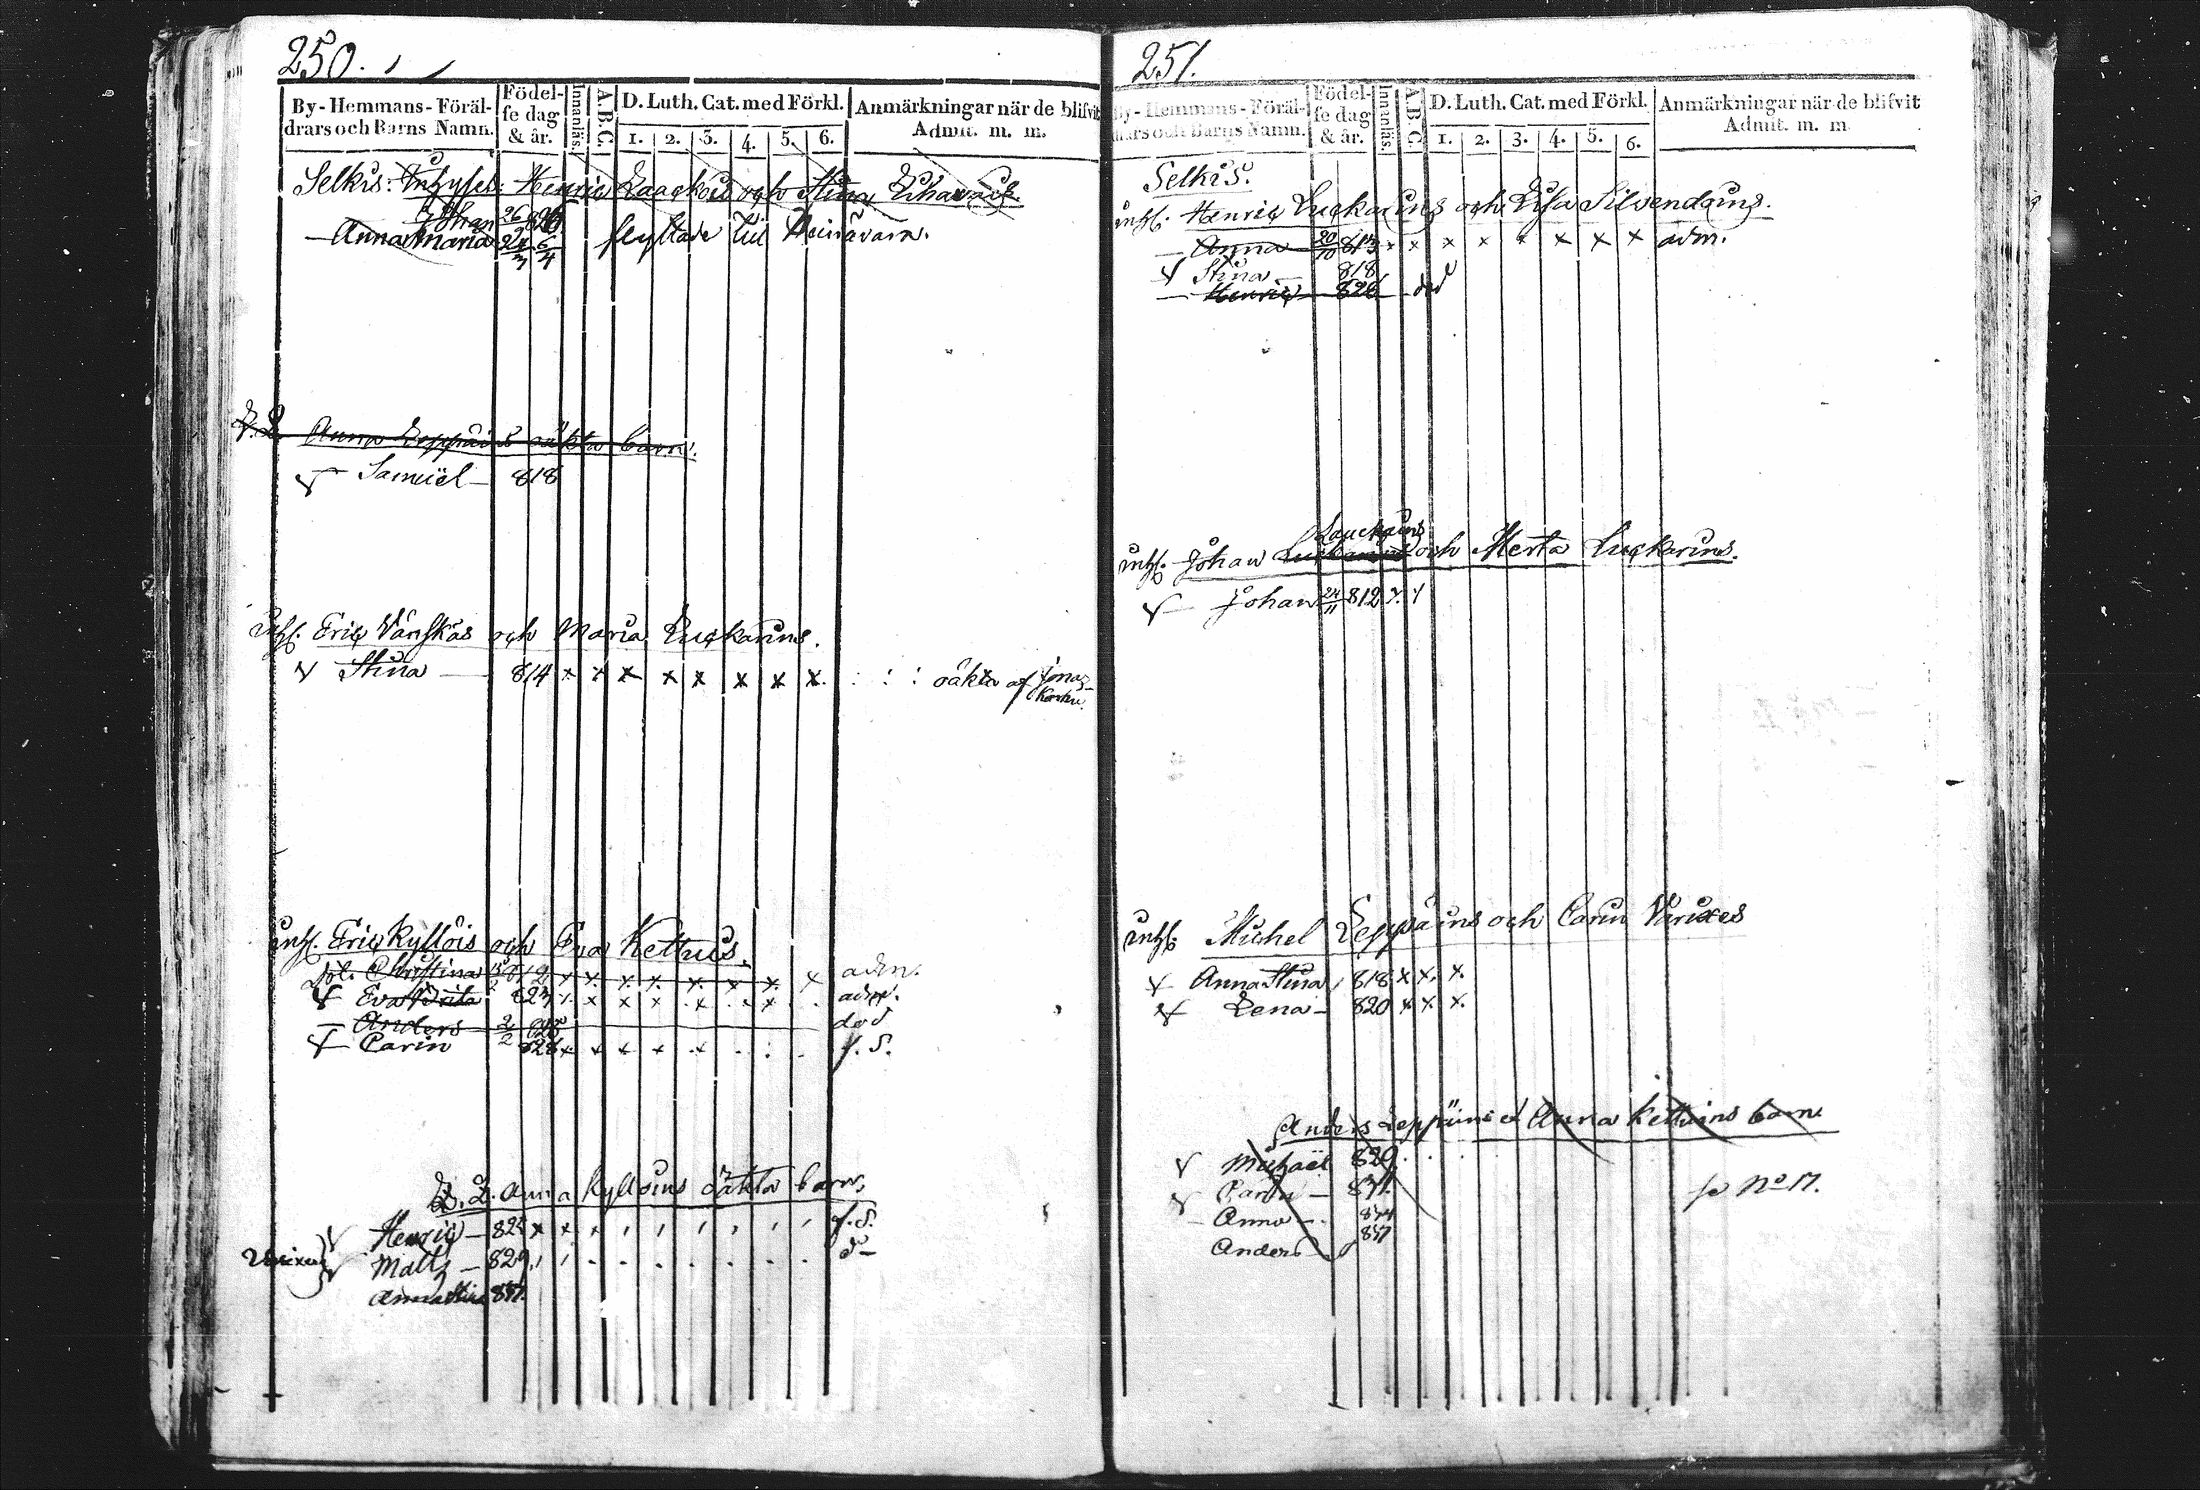 250.
By-Hemmans-Föräl-
drars och Barns Namn.
Födel-
se dag
& år.
Innanläs.
A.B.C.
D. Luth. Cat. med Förkl.
1. 2. 3. 4. 5. 6.
Anmärkningar när de blifvit
Admit. m. m.
Selkis: Inhyses: Henric och Stina
Johan 26 826
Anna Maria 24/3 flyttade till Heinävara.
Anna Leppäins oäkta barn.
v Samuël 818
inhs. Eric Vänskäs och Maria Luckarins.
v Stina 814 x x x x x x x x oäkta af Jonas
inhs. Eric Kyllöis och Eva Kettus.
Christina 812 x x x x x x x x adm.
v Eva Brita 823 x x x x x x adm.
Anders 2/2 828 död
v Carin 828 x x x x x f. S.
Anna Kyllöins oäkta barn,
v Henric 825 x x x f. S.
v Matts 829
Anna Stina 837.
251.
By-Hemmans-Föräl-
drars och Barns Namn.
Födel-
se dag
& år.
Innanläs.
A.B.C.
D. Luth. Cat. med Förkl.
1. 2. 3. 4. 5. 6.
Anmärkningar när de blifvit
Admit. m. m.
Selkis.
inhs. Henric Luckarins och Lisa Silvendoins.
Anna 20/10 813 x x x x x x x x adm.
v Stina 818
Henric 826 död
Lauckains
inhs. Johan Luckarins och Merta Luckarins.
v Johan 24/11 812 x x
inhs. Michel Leppäins och Carin Varixes
v Anna Stina 818 x x x
v Lena 820 x x x
Anders Leppäins et Anna Kettuins barn
v Michaël 829
v Carin 831.
Anna 834 se No 17.
Anders 837